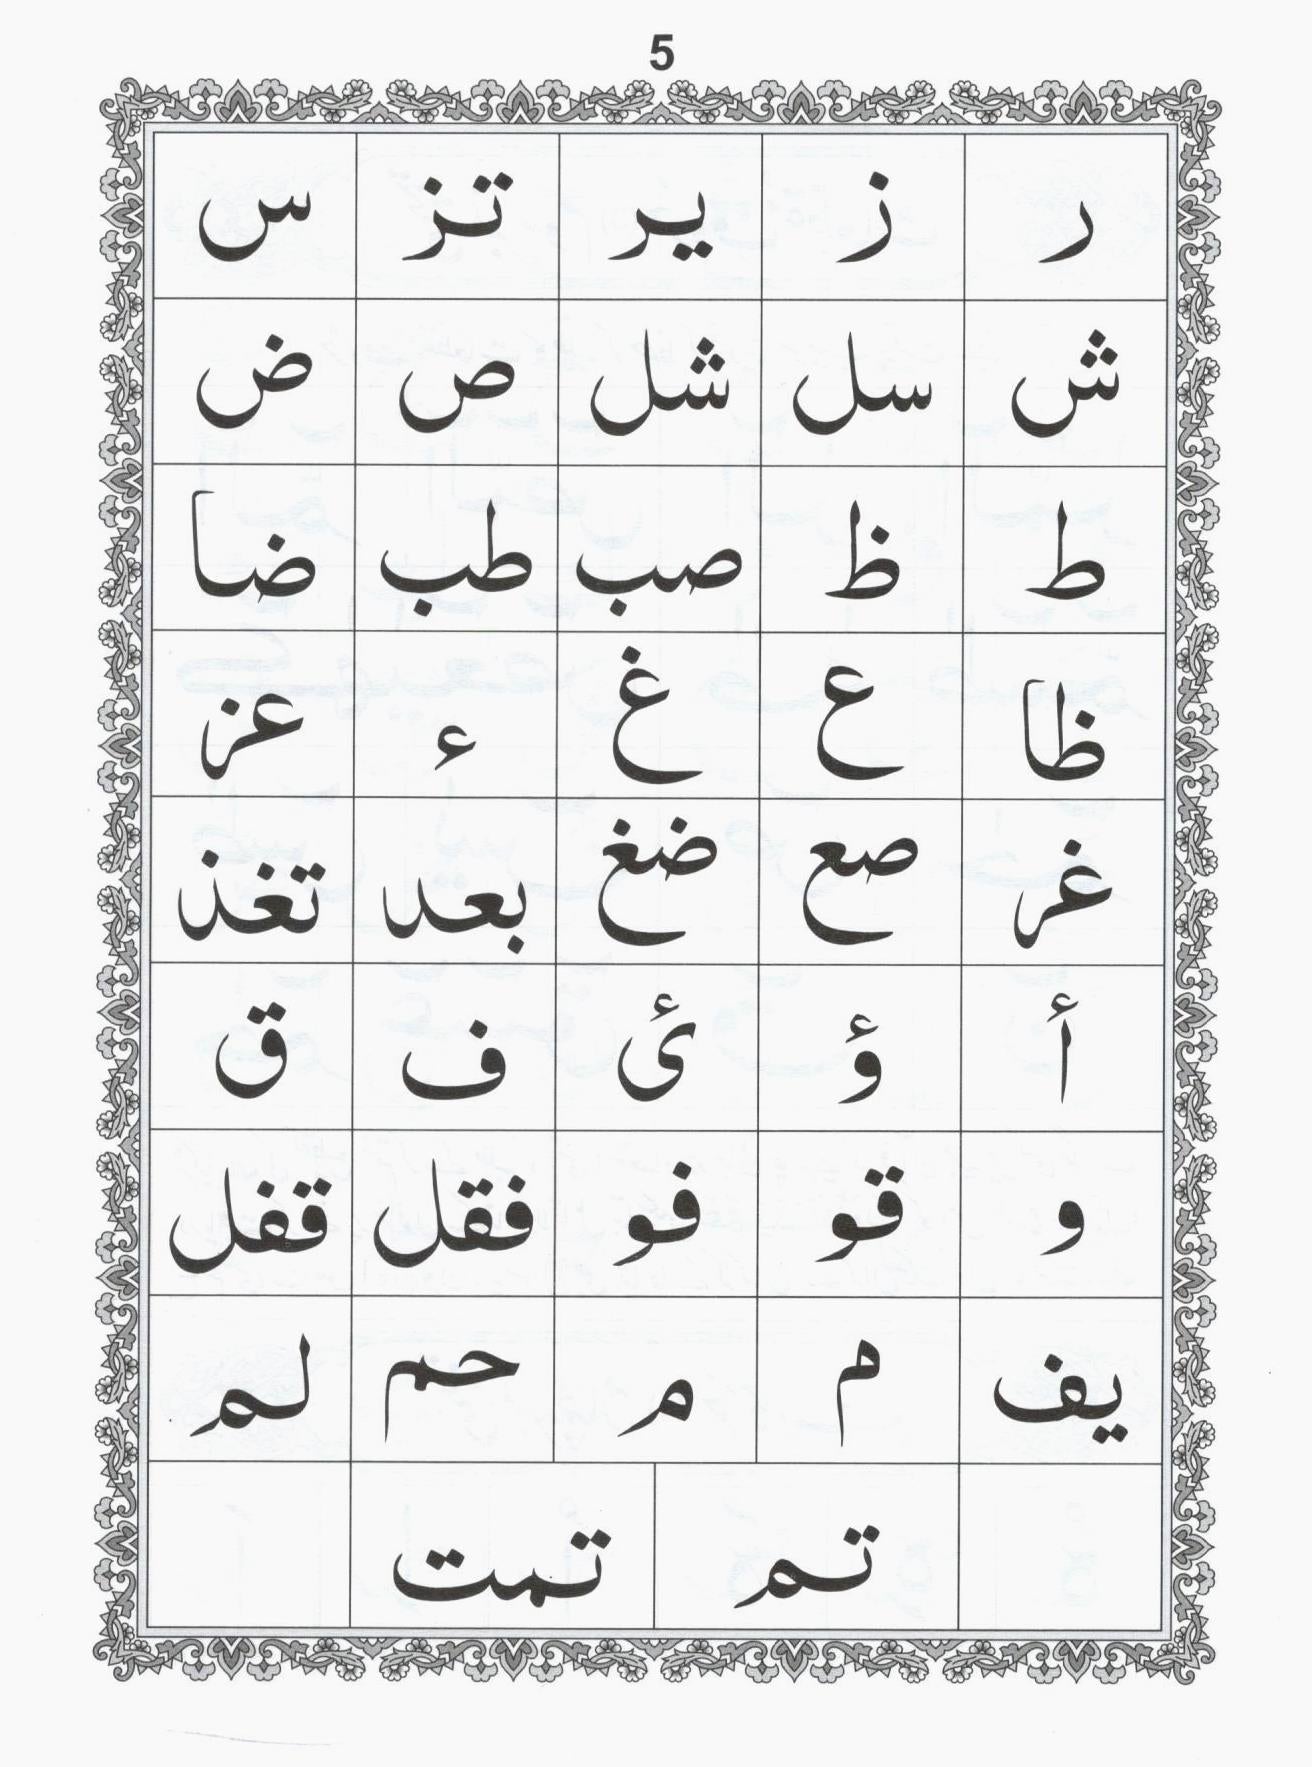 5
ر ز یر تز س
ش سل شل ص ض
ط ظ صب طب ضا
ظا ع غ ء عز
غر صع ضغ بعد تغذ
أ ؤ ئ ف ق
و قو فو فقل قفل
یف م م حم لم
تم تمت